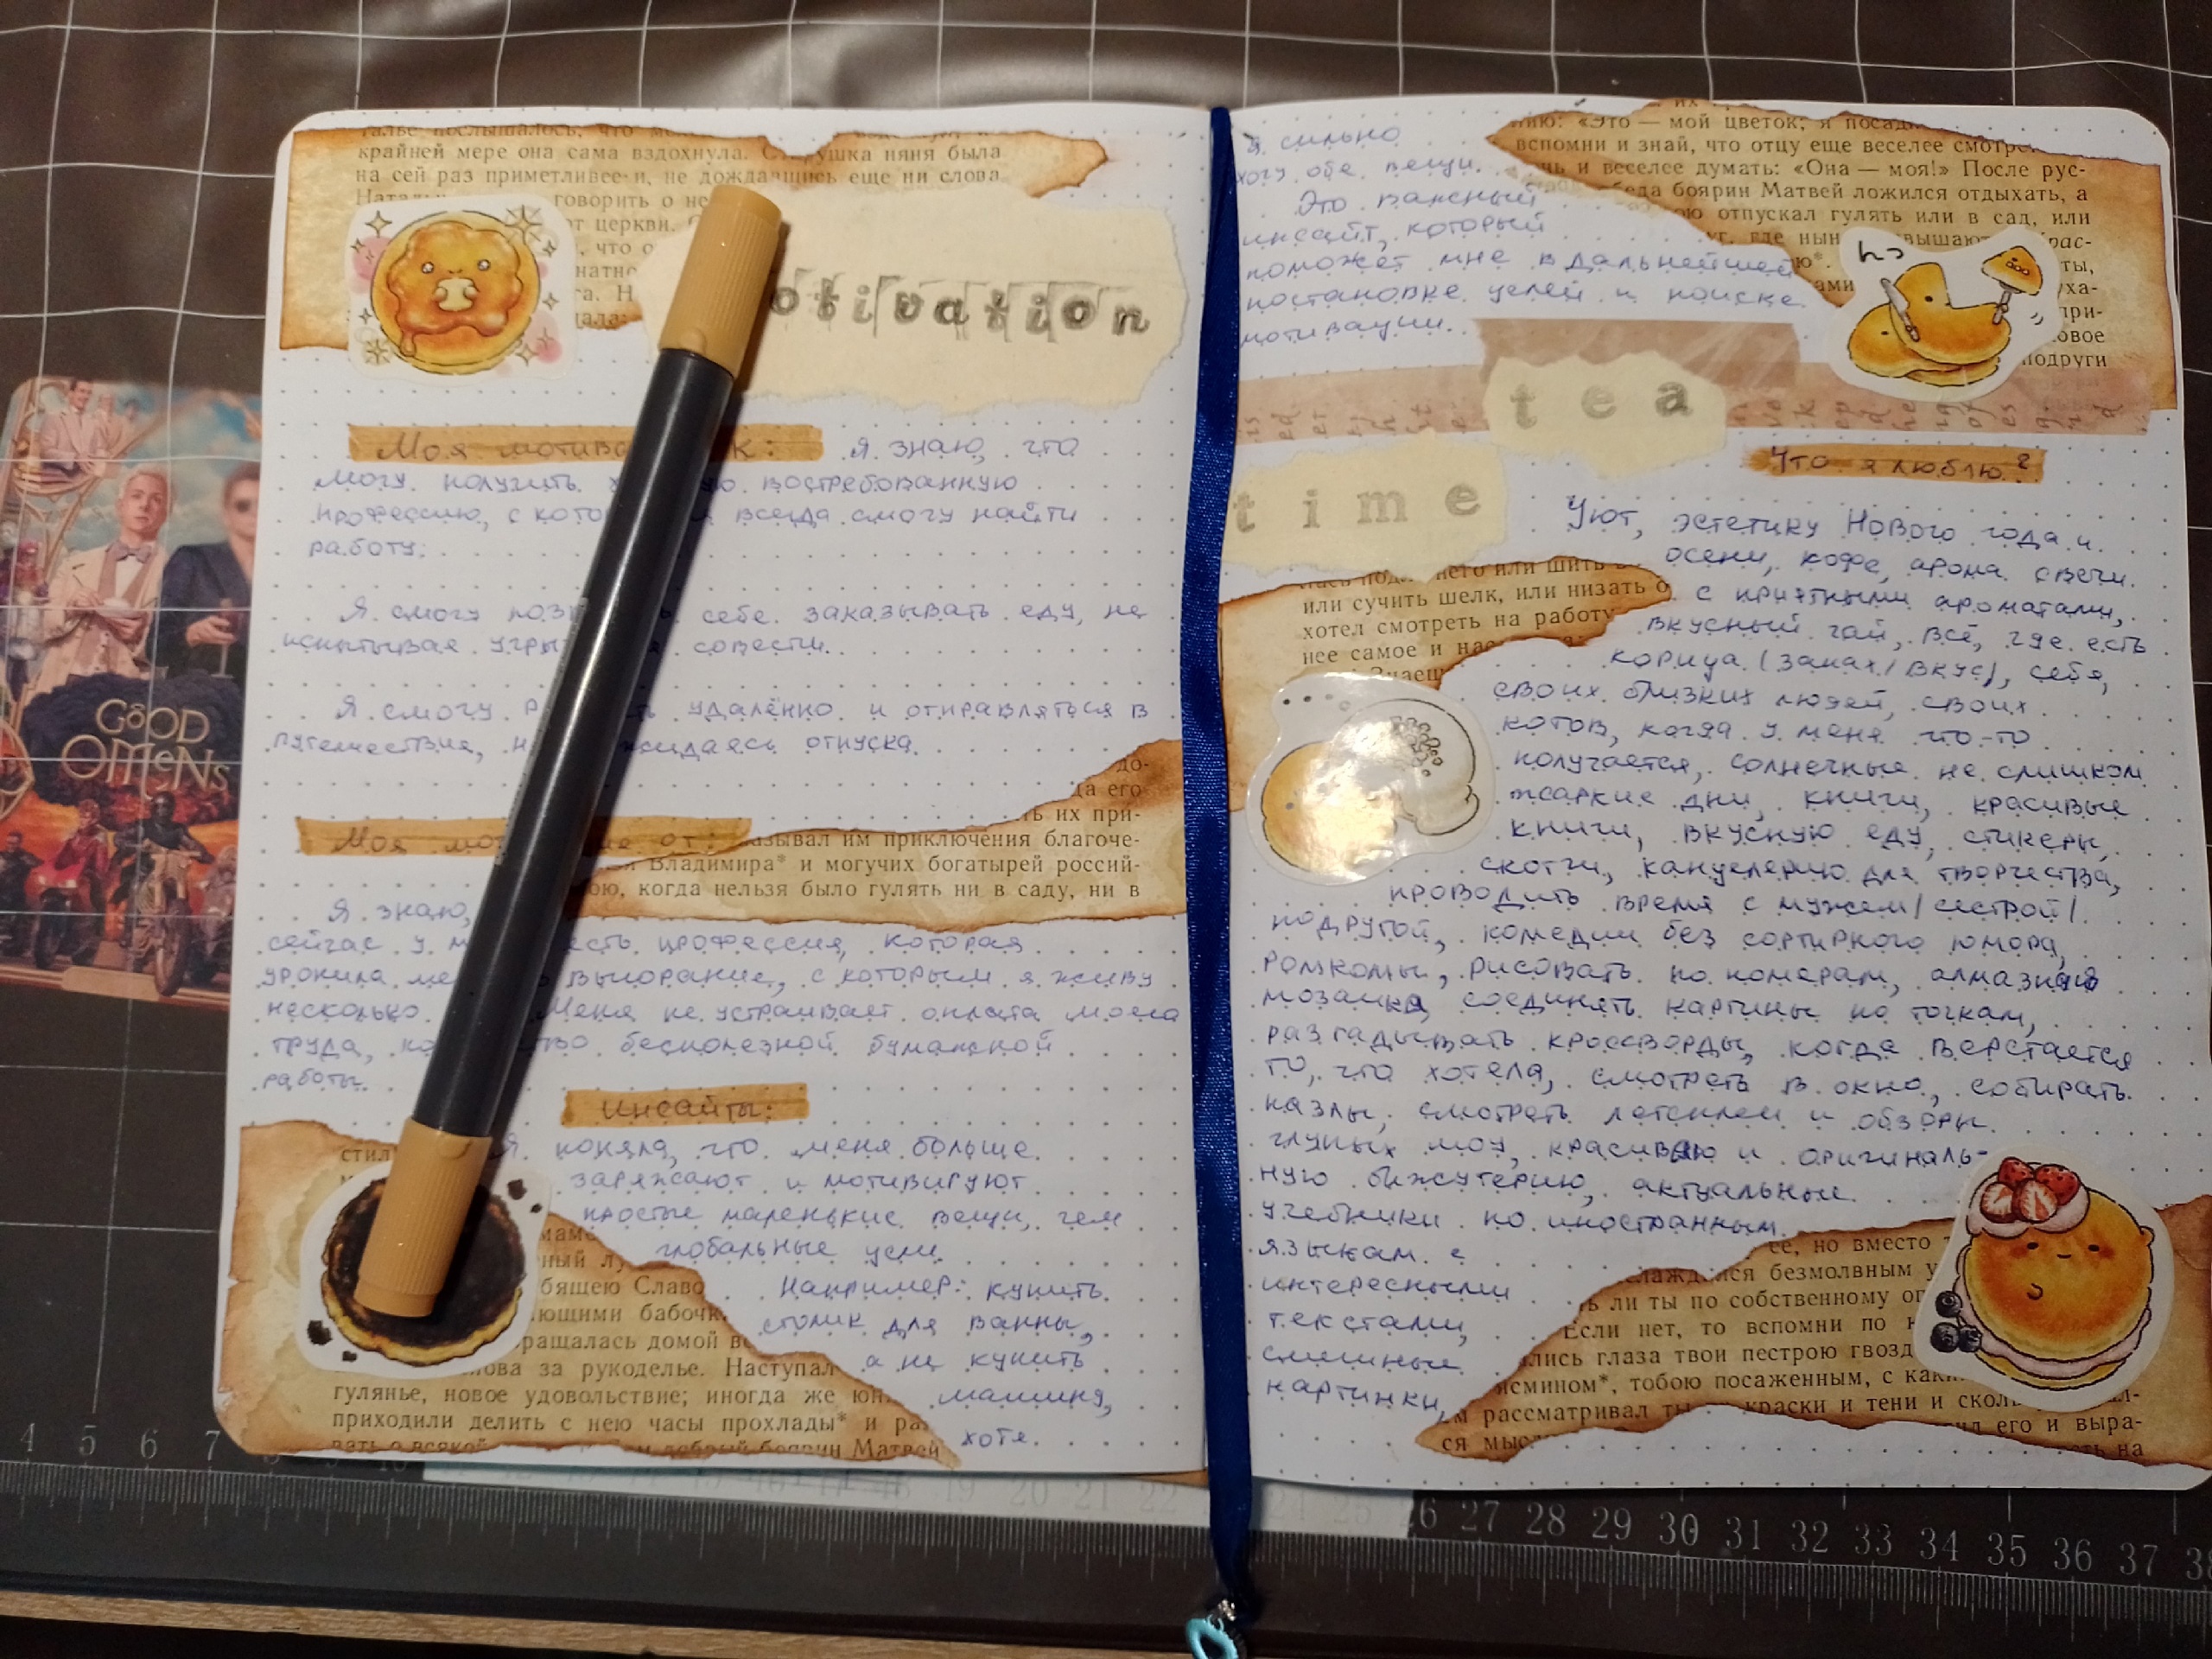 крайней мере она сама вздохнула. Старушка няня была
на сей раз приметливее и, не дождавшись еще ни слова
говорить о не
от церкви.
что о
otivation
Моя мотива к: Я знаю, что
могу получить востребованную
профессию, с которой всегда смогу найти
работу.
Я смогу себе заказывать еду, не
испытывая угры совести.
Я смогу удалённо и отправляться в
путешествия, отпуска.
до-
да его
ть их при-
азывал им приключения благоче-
Владимира* и могучих богатырей россий-
ою, когда нельзя было гулять ни в саду, ни в
Моя мо ие от:
Я знаю,
сейчас у м есть профессия, которая
уронила ме выгорание, с которым я живу
несколько Меня не устраивает оплата моего
труда, ко тво бесполезной бумажной
работы.
Инсайты:
Я поняла, что меня больше
заряжают и мотивируют
простые маленькие вещи, чем
глобальные цели.
Например: купить
столик для ванны,
а не купить
машину,
хотя
стил
мамо
ный лу
бящею Славо
ющими бабочк
ращалась домой
нова за рукоделье. Наступал
гулянье, новое удовольствие; иногда же юн
приходили делить с нею часы прохлады* и ра
добрый боярин Матвей
я сильно
хочу обе вещи.
Это важный
инсайт, который
поможет мне в дальнейшей
постановке целей и поиске
мотивации.
нию: «Это — мой цветок; я посад
вспомни и знай, что отцу еще веселее смотр
нь и веселее думать: «Она — моя!» После рус-
обеда боярин Матвей ложился отдыхать, а
ою отпускал гулять или в сад, или
уг, где нын вышают Крас-
ю*. ты,
ами уха-
при-
овое
подруги
tea
time
Что я люблю?
Уют, эстетику Нового года и
осени, кофе, арома свечи
с приятными ароматами,
вкусный чай, всё, где есть
корица (запах/вкус), себя,
своих близких людей, своих
котов, когда у меня что-то
получается, солнечные не слишком
жаркие дни, книги, красивые
книги, вкусную еду, стикеры,
скотчи, канцелярию для творчества,
проводить время с мужем/сестрой/
подругой, комедии без сортирного юмора,
ромкомы, рисовать по номерам, алмазная
мозаика, соединять картины по точкам,
разгадывать кроссворды, когда верстается
то, что хотела, смотреть в окно, собирать
пазлы, смотреть летсплеи и обзоры
глупых шоу, красивую и оригиналь-
ную бижутерию, актуальные
учебники по иностранным
языкам с
интересными
текстами,
смешные
картинки,
него или шить
или сучить шелк, или низать о
хотел смотреть на работу
нее самое и нас
Знаеш
ее, но вместо
слаждайся безмолвным у
ь ли ты по собственному оп
Если нет, то вспомни по
лись глаза твои пестрою гвозд
ясмином*, тобою посаженным, с каки
м рассматривал ты краски и тени и сколь
ся мыс его и выра-
еть на
GOOD
OMENS
4 5 6 7
19 20 21 22 24 25 26 27 28 29 30 31 32 33 34 35 36 37 38